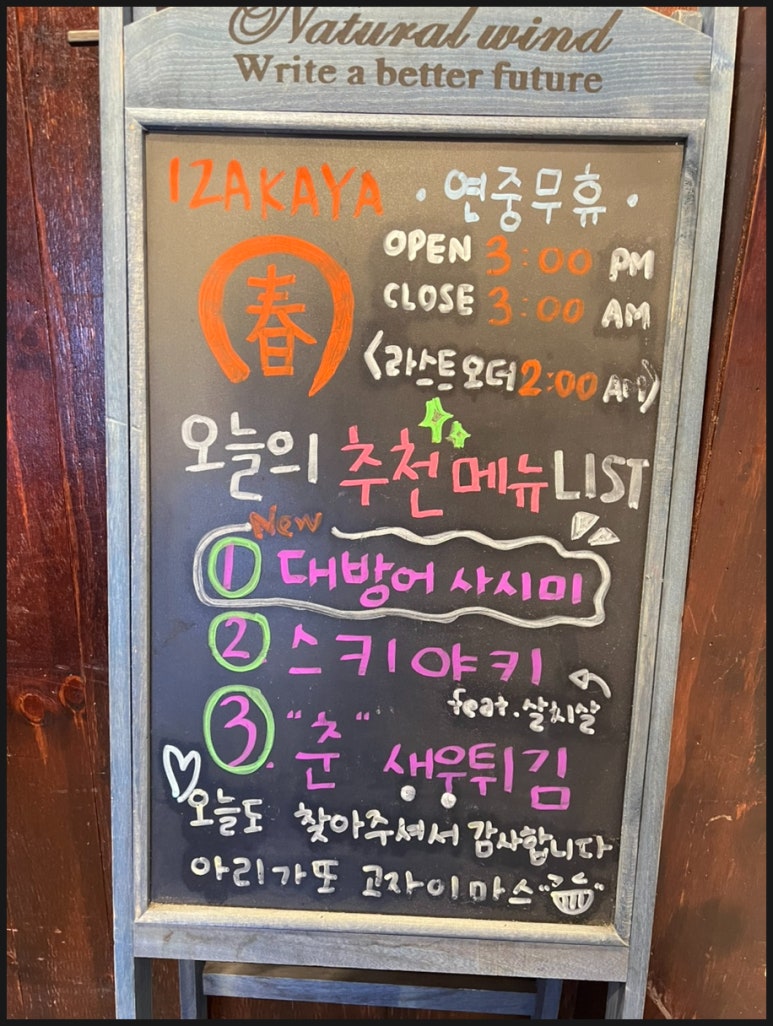 Natural wind
Write a better future
IZAKAYA · 연중무휴 ·
春
OPEN 3:00 PM
CLOSE 3:00 AM
<라스트오더 2:00 AM>
오늘의 추천메뉴 LIST
New
1 대방어 사시미
2 스키야키
feat. 살치살
3. "춘" 새우튀김
오늘도 찾아주셔서 감사합니다
아리가또 고자이마스""